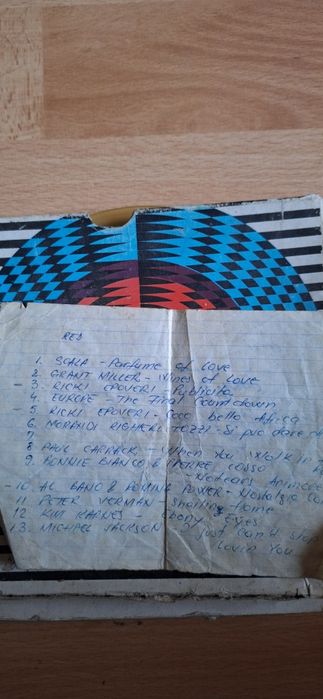 RED
1. SCALA - Parfume of Love
2. GRANT MILLER - Wines of Love
- 3. RICKI EPOVERI - Publicita
4. EUROPE - The Final Countdown
- 5. RICKI EPOVERI - Coco bello Africa
6. MORANDI RIGHERI TOZZI - Si puo dare
7
8 PAUL CARRACK - When You Walk in
9. BONNIE BIANCO & PIERRE COSSO
- No Tears
- 10. AL BANO & ROMINA POWER - Nostalgia
11 PETER VERMAN - flame
12 KIM KARNES - Eyes
13. MICHAEL JACKSON - I just Can't Stop
Lovin You